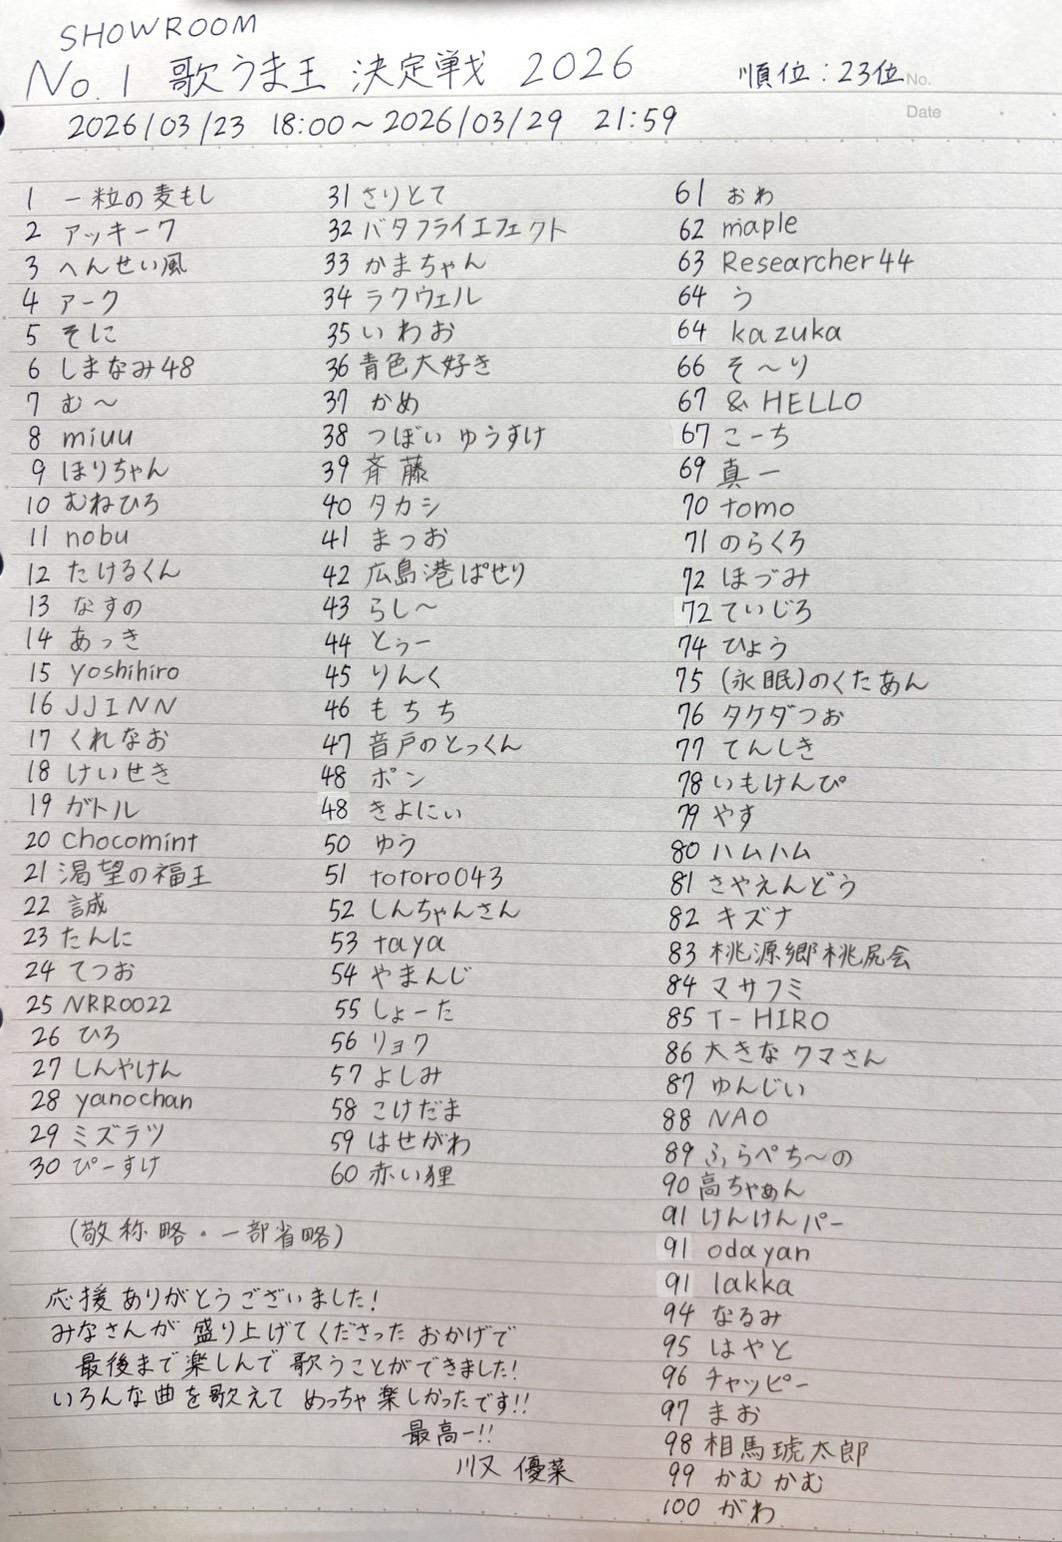 SHOWROOM
No.1 歌うま王 決定戦 2026 順位:23位
No.
2026/03/23 18:00～2026/03/29 21:59
Date
1 一粒の麦もし
2 アッキーク
3 へんせい風
4 アーク
5 そに
6 しまなみ48
7 む～
8 miuu
9 ほりちゃん
10 むねひろ
11 nobu
12 たけるくん
13 なすの
14 あっき
15 yoshihiro
16 JJINN
17 くれなお
18 けいせき
19 ガトル
20 chocomint
21 渇望の福王
22 誠
23 たんに
24 てつお
25 NRR0022
26 ひろ
27 しんやけん
28 yanochan
29 ミズテツ
30 ぴーすけ
31 さりとて
32 バタフライエフェクト
33 かまちゃん
34 ラクウェル
35 いわお
36 青色大好き
37 かめ
38 つぼい ゆうすけ
39 斉藤
40 タカシ
41 まつお
42 広島港ぱせり
43 らし～
44 とぅー
45 りんく
46 もちち
47 音戸のとっくん
48 ポン
48 きよにぃ
50 ゆう
51 totoro043
52 しんちゃんさん
53 taya
54 やまんじ
55 しょーた
56 リョク
57 よしみ
58 こけだま
59 はせがわ
60 赤い狸
61 ぉゎ
62 maple
63 Researcher44
64 う
64 kazuka
66 そ～り
67 & HELLO
67 こーち
69 真一
70 tomo
71 のらくろ
72 ほづみ
72 ていじろ
74 ひょう
75 (永眠)のくたあん
76 タケダつお
77 てんしき
78 いもけんぴ
79 やす
80 ハムハム
81 さやえんどう
82 キズナ
83 桃源郷桃尻会
84 マサフミ
85 T-HIRO
86 大きなクマさん
87 ゆんじい
88 NAO
89 ふらぺち～の
90 高ちゃぁん
91 けんけんパー
91 odayan
91 lakka
94 なるみ
95 はやと
96 チャッピー
97 まお
98 相馬琥太郎
99 かむかむ
100 がわ
(敬称略・一部省略)
応援ありがとうございました!
みなさんが盛り上げてくださったおかげで
最後まで楽しんで歌うことができました!
いろんな曲を歌えてめっちゃ楽しかったです!!
最高ー!!
川又 優菜